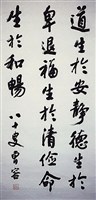 道生於安靜德生於
卑退福生於清儉命
生於和暢